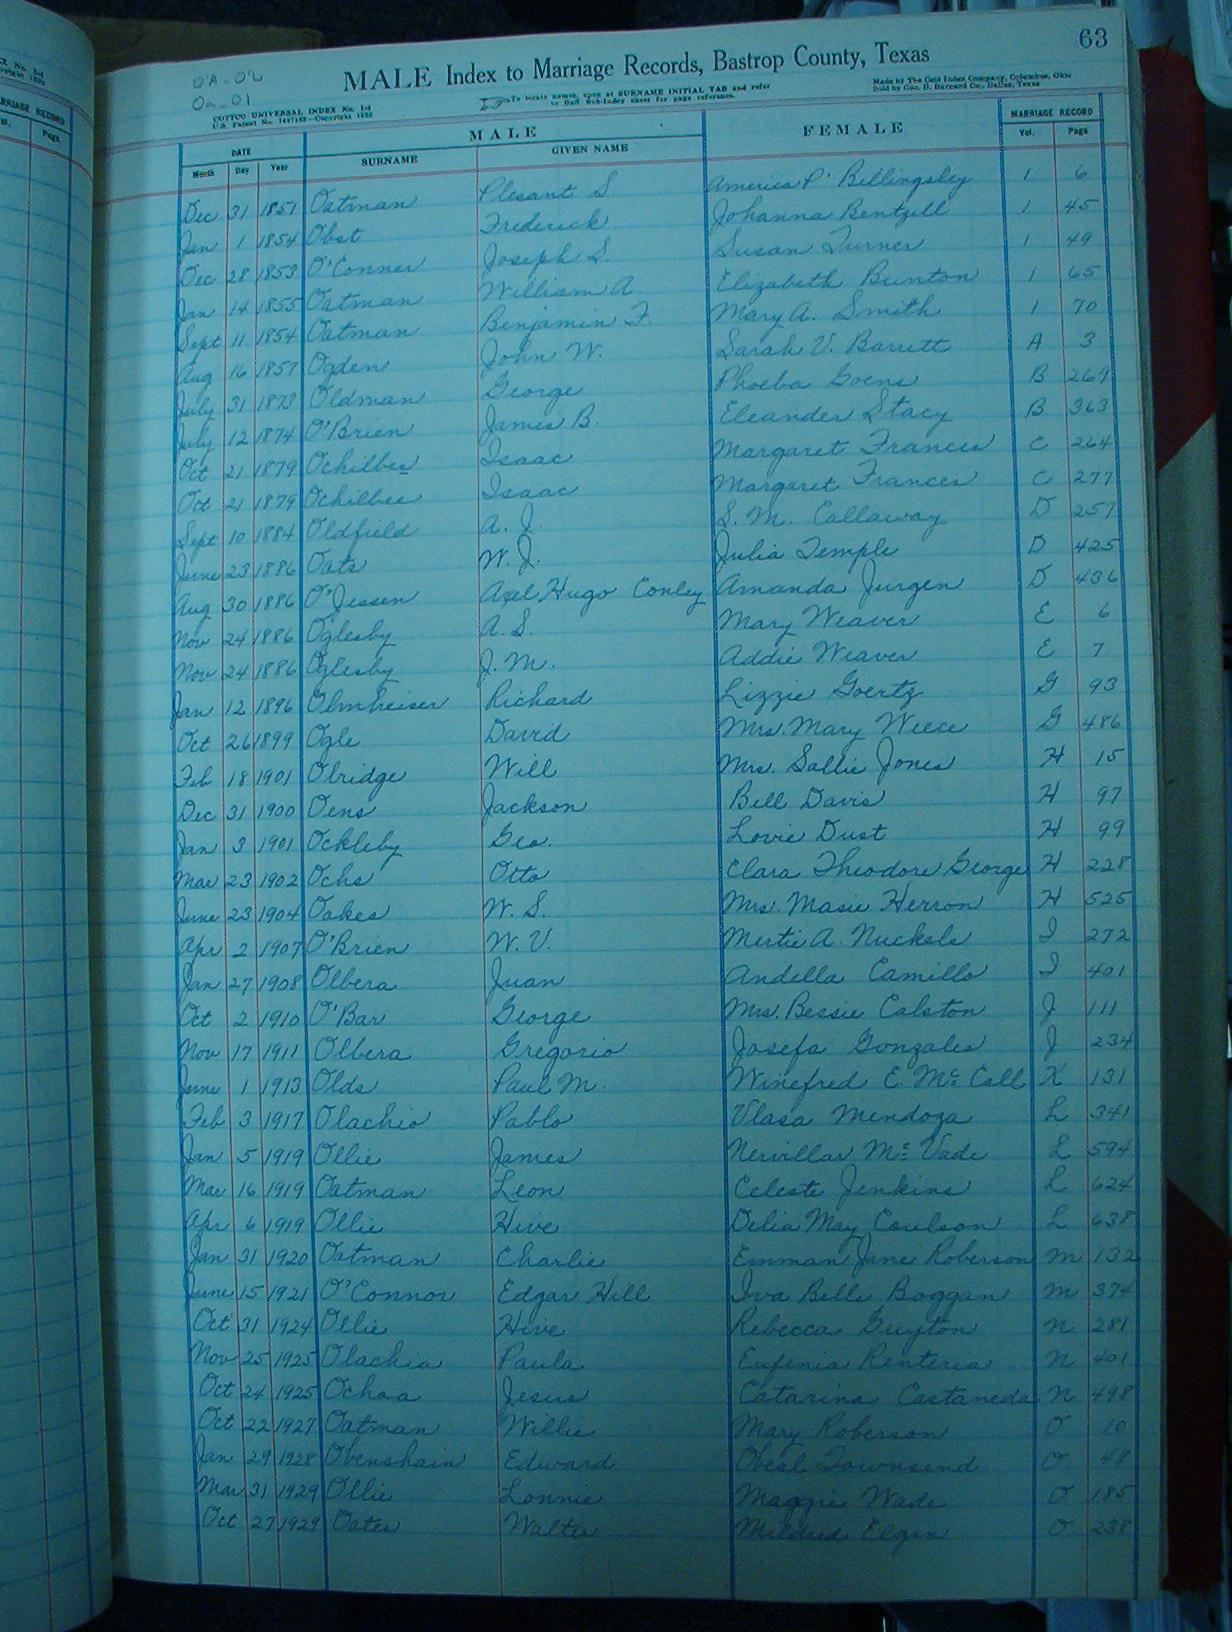 63
O'A - O'L
Oa - Ol
MALE Index to Marriage Records, Bastrop County, Texas
COTTCO UNIVERSAL INDEX No. I-4
To locate names, open at SURNAME INITIAL TAB and refer
to Buff Sub-Index sheet for page reference.
Made by The Cott Index Company, Columbus, Ohio
Sold by Geo. D. Barnard Co., Dallas, Texas
DATE MALE FEMALE MARRIAGE RECORD
Month Day Year SURNAME GIVEN NAME Vol. Page
Dec 31 1851 Oatman Plesant S America P. Billingsley 1 6
Jan 1 1854 Obst Frederick Johanna Bentzell 1 45
Dec 28 1853 O'Conner Joseph S. Susan Turner 1 49
Jan 14 1855 Oatman William A. Elizabeth Bunton 1 65
Sept 11 1854 Oatman Benjamin F. Mary A. Smith 1 70
Aug 16 1857 Ogden John W. Sarah V. Barrett A 3
July 31 1873 Oldman George Phoeba Goens B 269
July 12 1874 O'Brien James B. Eleander Stacy B 363
Oct 21 1879 Ochilbee Isaac Margaret Frances C 264
Oct 21 1879 Ochilbee Isaac Margaret Frances C 277
Sept 10 1884 Oldfield A. J. S. M. Callaway D 257
June 23 1886 Oats W. J. Julia Temple D 425
Aug 30 1886 O'Jessen Axel Hugo Conley Amanda Jurgen D 436
Nov 24 1886 Oglesby A. S. Mary Weaver E 6
Nov 24 1886 Oglesby J. M. Addie Weaver E 7
Jan 12 1896 Olmheiser Richard Lizzie Goertz G 93
Oct 26 1899 Ogle David Mrs. Mary Weece G 486
Feb 18 1901 Olridge Will Mrs. Sallie Jones H 15
Dec 31 1900 Oens Jackson Bell Davis H 97
Jan 3 1901 Ockleby Geo. Lovie Dust H 99
Mar 23 1902 Ochs Otto Clara Theodore George H 228
June 23 1904 Oakes W. S. Mrs. Masie Herron H 525
Apr 2 1907 O'Brien W. V. Mertie A. Nuckels I 272
Jan 27 1908 Olbera Juan Andella Camillo I 401
Oct 2 1910 O'Bar George Mrs. Bessie Calston J 111
Nov 17 1911 Olbera Gregorio Josefa Gonzales J 234
June 1 1913 Olds Paul M. Winefred E. McCall K 131
Feb 3 1917 Olachio Pablo Vlasa Mendoza L 341
Jan 5 1919 Ollie James Nervillar McVade L 594
Mar 16 1919 Oatman Leon Celeste Jenkins L 624
Apr 6 1919 Ollie Hive Delia May Coulson L 638
Jan 31 1920 Oatman Charlie Emman Jane Roberson M 132
June 15 1921 O'Connor Edgar Hill Iva Belle Boggan M 374
Oct 31 1924 Ollie Hive Rebecca Guyton N 281
Nov 25 1925 Olachia Paula Eufenia Renteria N 401
Oct 24 1925 Ochoa Jesus Catarina Castaneda N 498
Oct 22 1927 Oatman Willie Mary Roberson O 10
Jan 29 1928 Obenshain Edward Obeal Townsend O 48
Mar 31 1929 Ollie Lonnie Maggie Wade O 185
Oct 27 1929 Oates Walter Mildred Elgin O 238